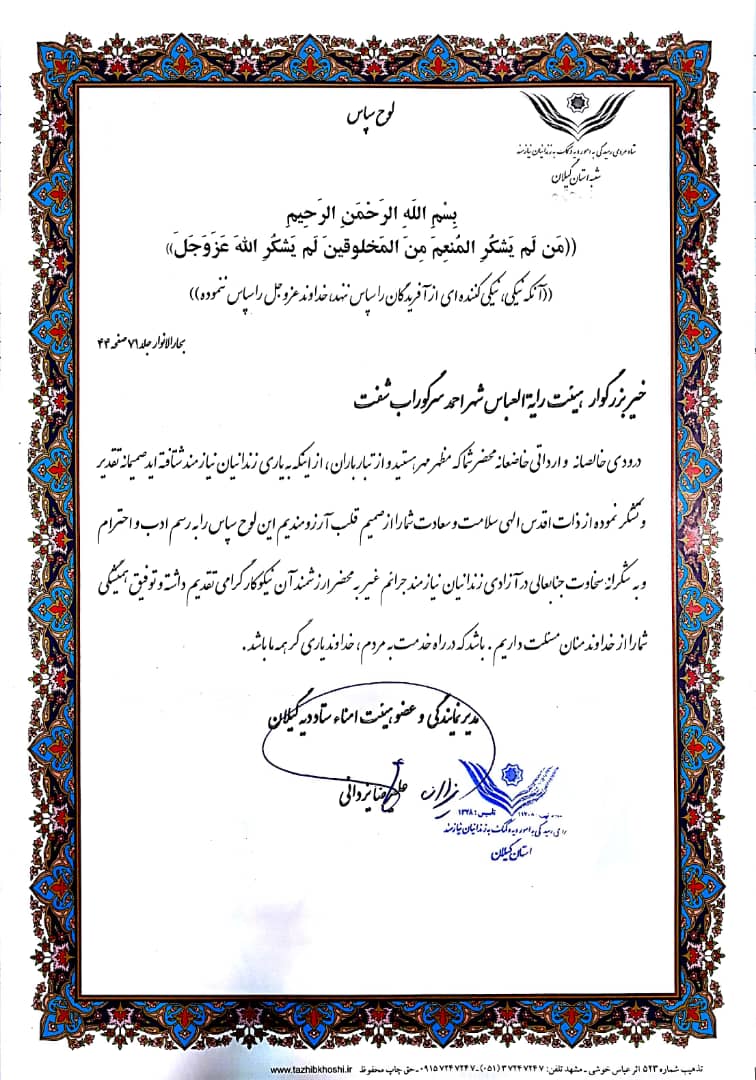 لوح سپاس
ستاد مردمی رسیدگی به امور دیه و کمک به زندانیان نیازمند
شعبه استان گیلان
بِسْمِ اللَهِ الرَحْمَنِ الرَحِیمِ
((مَن لَم یَشکُرِ المُنعِمَ مِنَ المَخلوقینَ لَم یَشکُرِ اللهَ عَزَوَجَلَ))
((آنکه نیکیِ، نیکی کننده ای از آفریدگان را سپاس ننهد، خداوند عزوجل را سپاس ننموده))
بحارالانوار جلد ۷۱ صفحه ۴۴
خیر بزرگوار هیئت رایة العباس شهر احمد سرگوراب شفت
درودی خالصانه و ارداتی خاضعانه محضر شما که مظهر مهر هستید و از تبار باران، از اینکه به یاری زندانیان نیازمند شتافته اید صمیمانه تقدیر
و تشکر نموده از ذات اقدس الهی سلامت و سعادت شما را از صمیم قلب آرزومندیم این لوح سپاس را به رسم ادب و احترام
و به شکرانه سخاوت جنابعالی در آزادی زندانیان نیازمند جرائم غیر به محضر ارزشمند آن نیکوکار گرامی تقدیم داشته و توفیق همیشگی
شما را از خداوند منان مسئلت داریم. باشد که در راه خدمت به مردم، خداوند یاری گر همه ما باشد.
مدیر نمایندگی و عضو هیئت امناء ستاد دیه گیلان
علیرضا یزدانی
تاسیس: ۱۳۷۸
رسیدگی به امور دیه و کمک به زندانیان نیازمند
استان گیلان
تذهیب شماره ۵۲۳ اثر عباس خوشی - مشهد تلفن: ۳۷۲۴۷۲۴۷ (۰۵۱) - ۰۹۱۵۷۲۴۷۲۴۷ - حق چاپ محفوظ www.tazhibkhoshi.ir